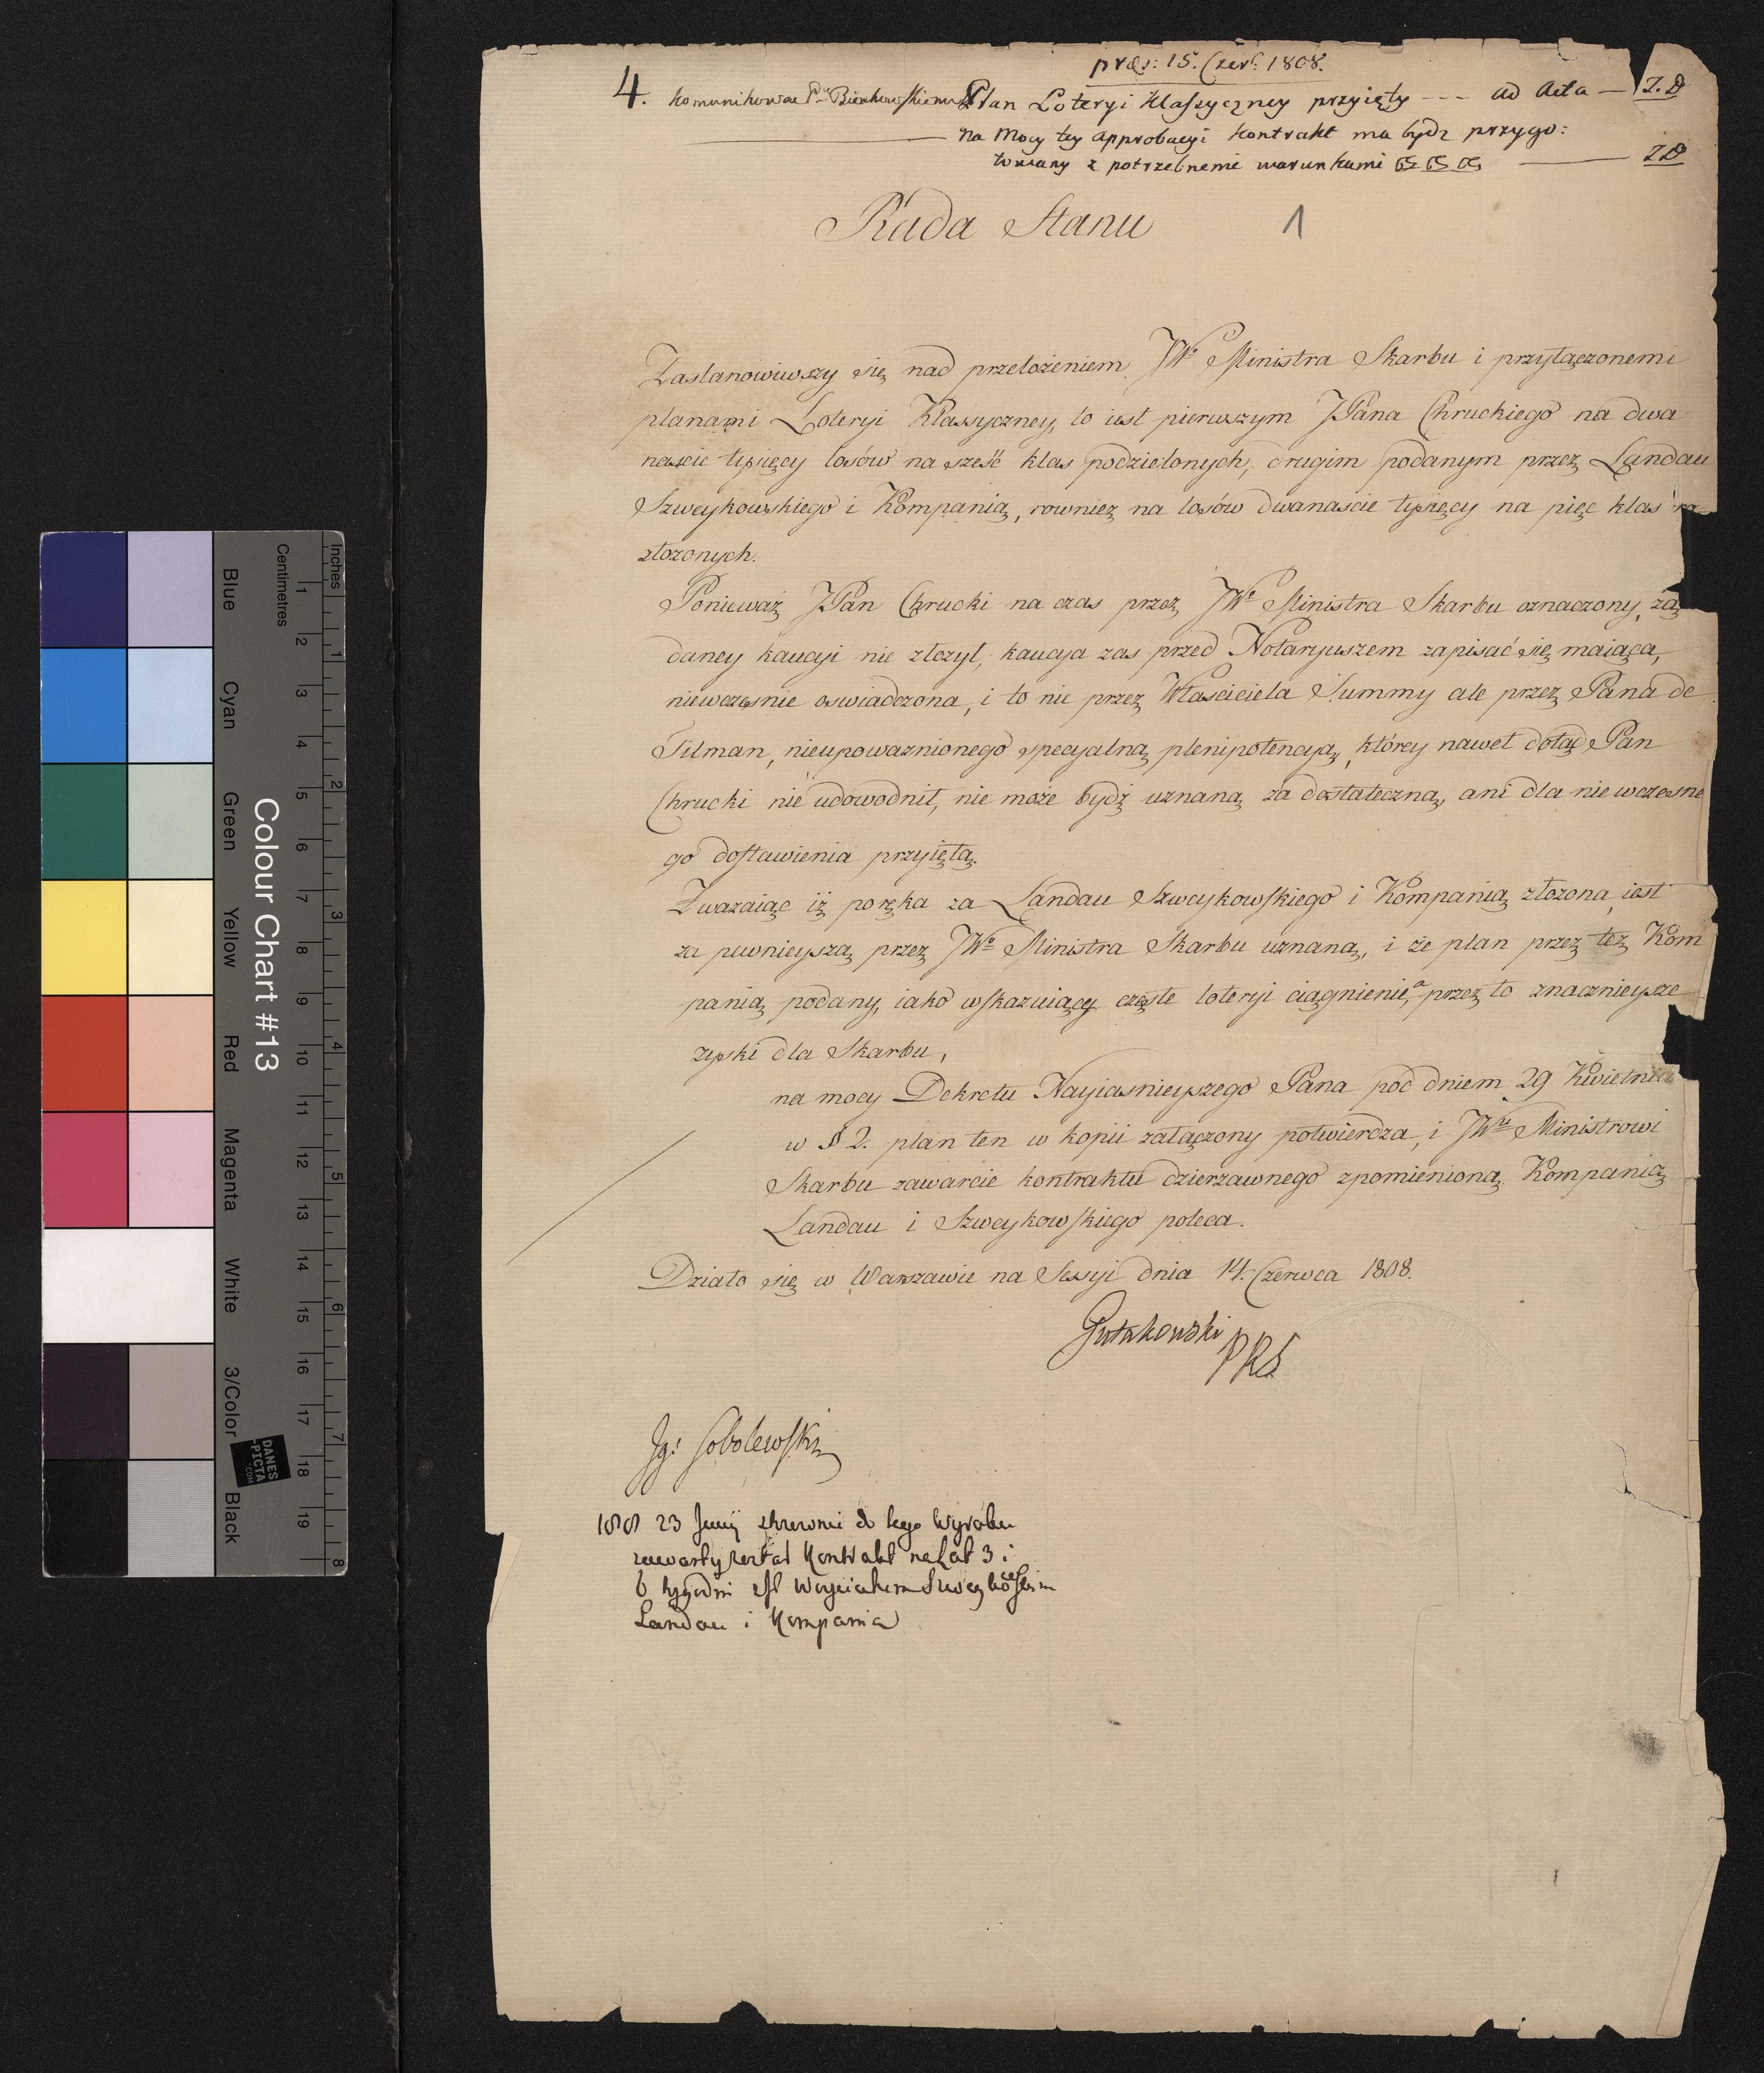 præs: 15. Czerw: 1808.
4. Komunikowac Pu Bienkowskiemu Plan Loteryi Klassyczney przyięty --- ad Acta — Z.D
na Mocy tey approbacyi Kontrakt ma bydz przygo:
towany z potrzebnemi warunkami ZD
Rada Stanu 1
Zastanowiwszy się nad przełożeniem JWo Ministra Skarbu i przyłączonemi
planami Loteryi Klassyczney, to iest pierwszym JPana Chruckiego na dwa
nascie tysięcy losów na sześć klas podzielonych, drugim podanym przez Landau
Szweykowskiego i Kompanią, rownież na losów dwanascie tysięcy na pięc klas
złozonych.
Ponieważ JPan Chrucki na czas przez JWo Ministra Skarbu oznaczony, żą
daney kaucyi nie złozył, kaucya zas przed Notaryuszem zapisać się maiąca,
niewczesnie oswiadczona, i to nie przez Własciciela Summy ale przez Pana de
Tilman, nieupowaznionego specyalną plenipotencyą, którey nawet dotąd Pan
Chrucki nie udowodnił, nie może bydź uznaną za dostateczną, ani dla niewczesne
go dostawienia przyiętą.
Zwazaiąc iż poręka za Landau Szweykowskiego i Kompanią złozona iest
za pewnieyszą przez JWo Ministra Skarbu uznaną, i że plan przez też Kom
panią podany, iako wskazuiący częste loteryi ciągnienia, przez to znacznieysze
zyski dla Skarbu,
na mocy Dekretu Nayiasnieyszego Pana pod dniem 29 Kwietnia
w § 2. plan ten w kopii załączony potwierdza, i JWu Ministrowi
Skarbu zawarcie kontraktu dzierzawnego z pomienioną Kompanią
Landau i Szweykowskiego poleca.
Działo się w Warszawie na Sessyi dnia 14. Czerwca 1808.
Gutakowski
PRS
Ig: Sobolewski
1808 23 Junij do tego
zawarty został Kontrakt na Lat 3 i
6 tygodni
Landau i Kompania
Colour Chart #13
Blue
Cyan
Green
Yellow
Red
Magenta
White
3/Color
Black
Inches
1 2 3 4 5 6 7 8
Centimetres
1 2 3 4 5 6 7 8 9 10 11 12 13 14 15 16 17 18 19
DANES
-PICTA
.COM